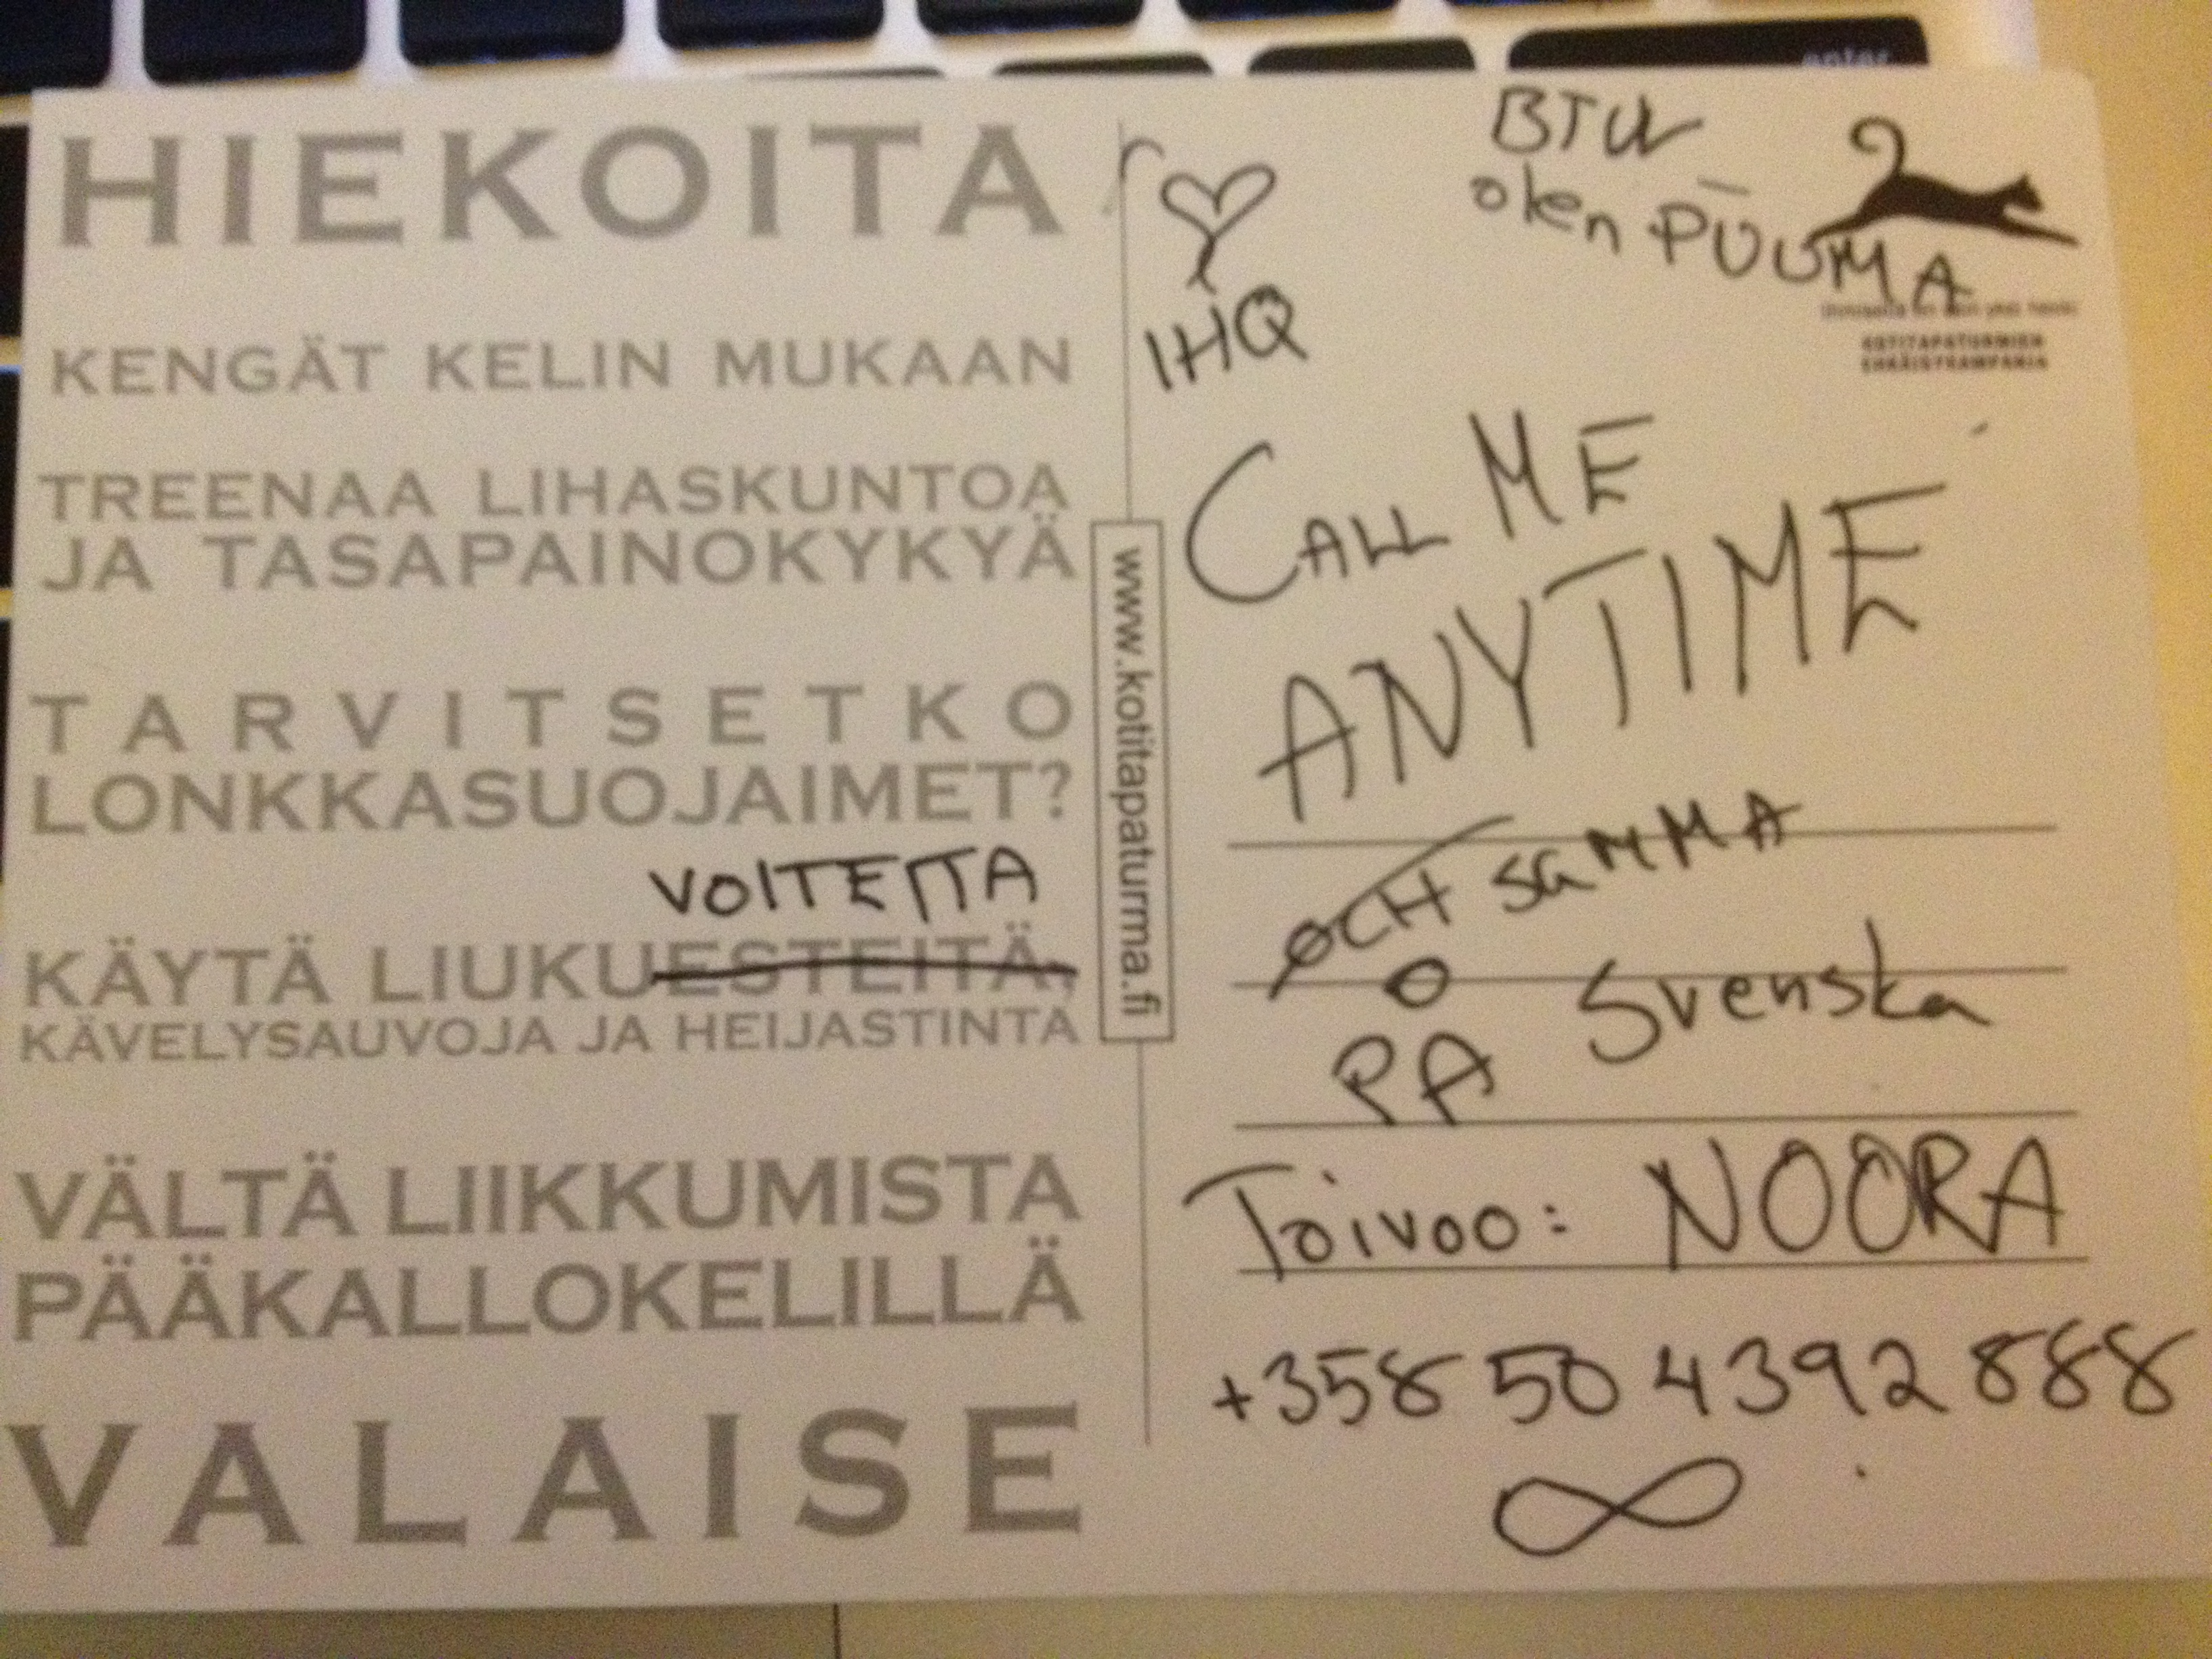 enter
HIEKOITA
KENGÄT KELIN MUKAAN
TREENAA LIHASKUNTOA
JA TASAPAINOKYKYÄ
TARVITSETKO
LONKKASUOJAIMET?
VOITEITA
KÄYTÄ LIUKUESTEITÄ,
KÄVELYSAUVOJA JA HEIJASTINTA
VÄLTÄ LIIKKUMISTA
PÄÄKALLOKELILLÄ
VALAISE
www.kotitapaturma.fi
BTW
olen PUUMA
KOTITAPATURMIEN
EHKÄISYKAMPANJA
IHQ
CALL ME
ANYTIME
OCH SAMMA
PÅ Svenska
Toivoo: NOORA
+358 50 4392 888